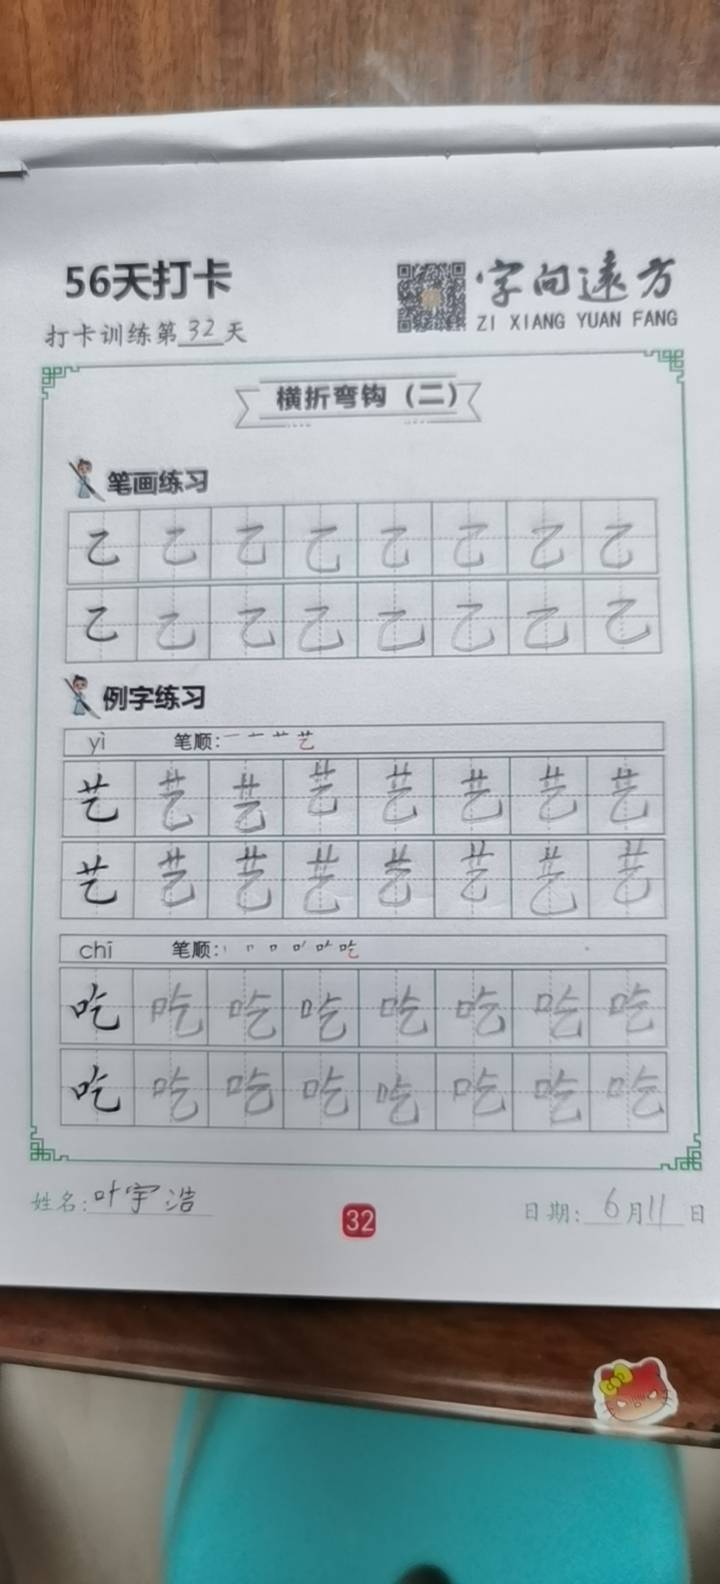 56天打卡
字向遠方
ZI XIANG YUAN FANG
打卡训练第32天
横折弯钩（二）
笔画练习
乙 乙 乙 乙 乙 乙 乙 乙
乙 乙 乙 乙 乙 乙 乙 乙
例字练习
yì 笔顺：一 十 艹 艺
艺 艺 艺 艺 艺 艺 艺 艺
艺 艺 艺 艺 艺 艺 艺 艺
chī 笔顺：
吃 吃 吃 吃 吃 吃 吃 吃
吃 吃 吃 吃 吃 吃 吃 吃
姓名：叶宇浩
32
日期：6月11日